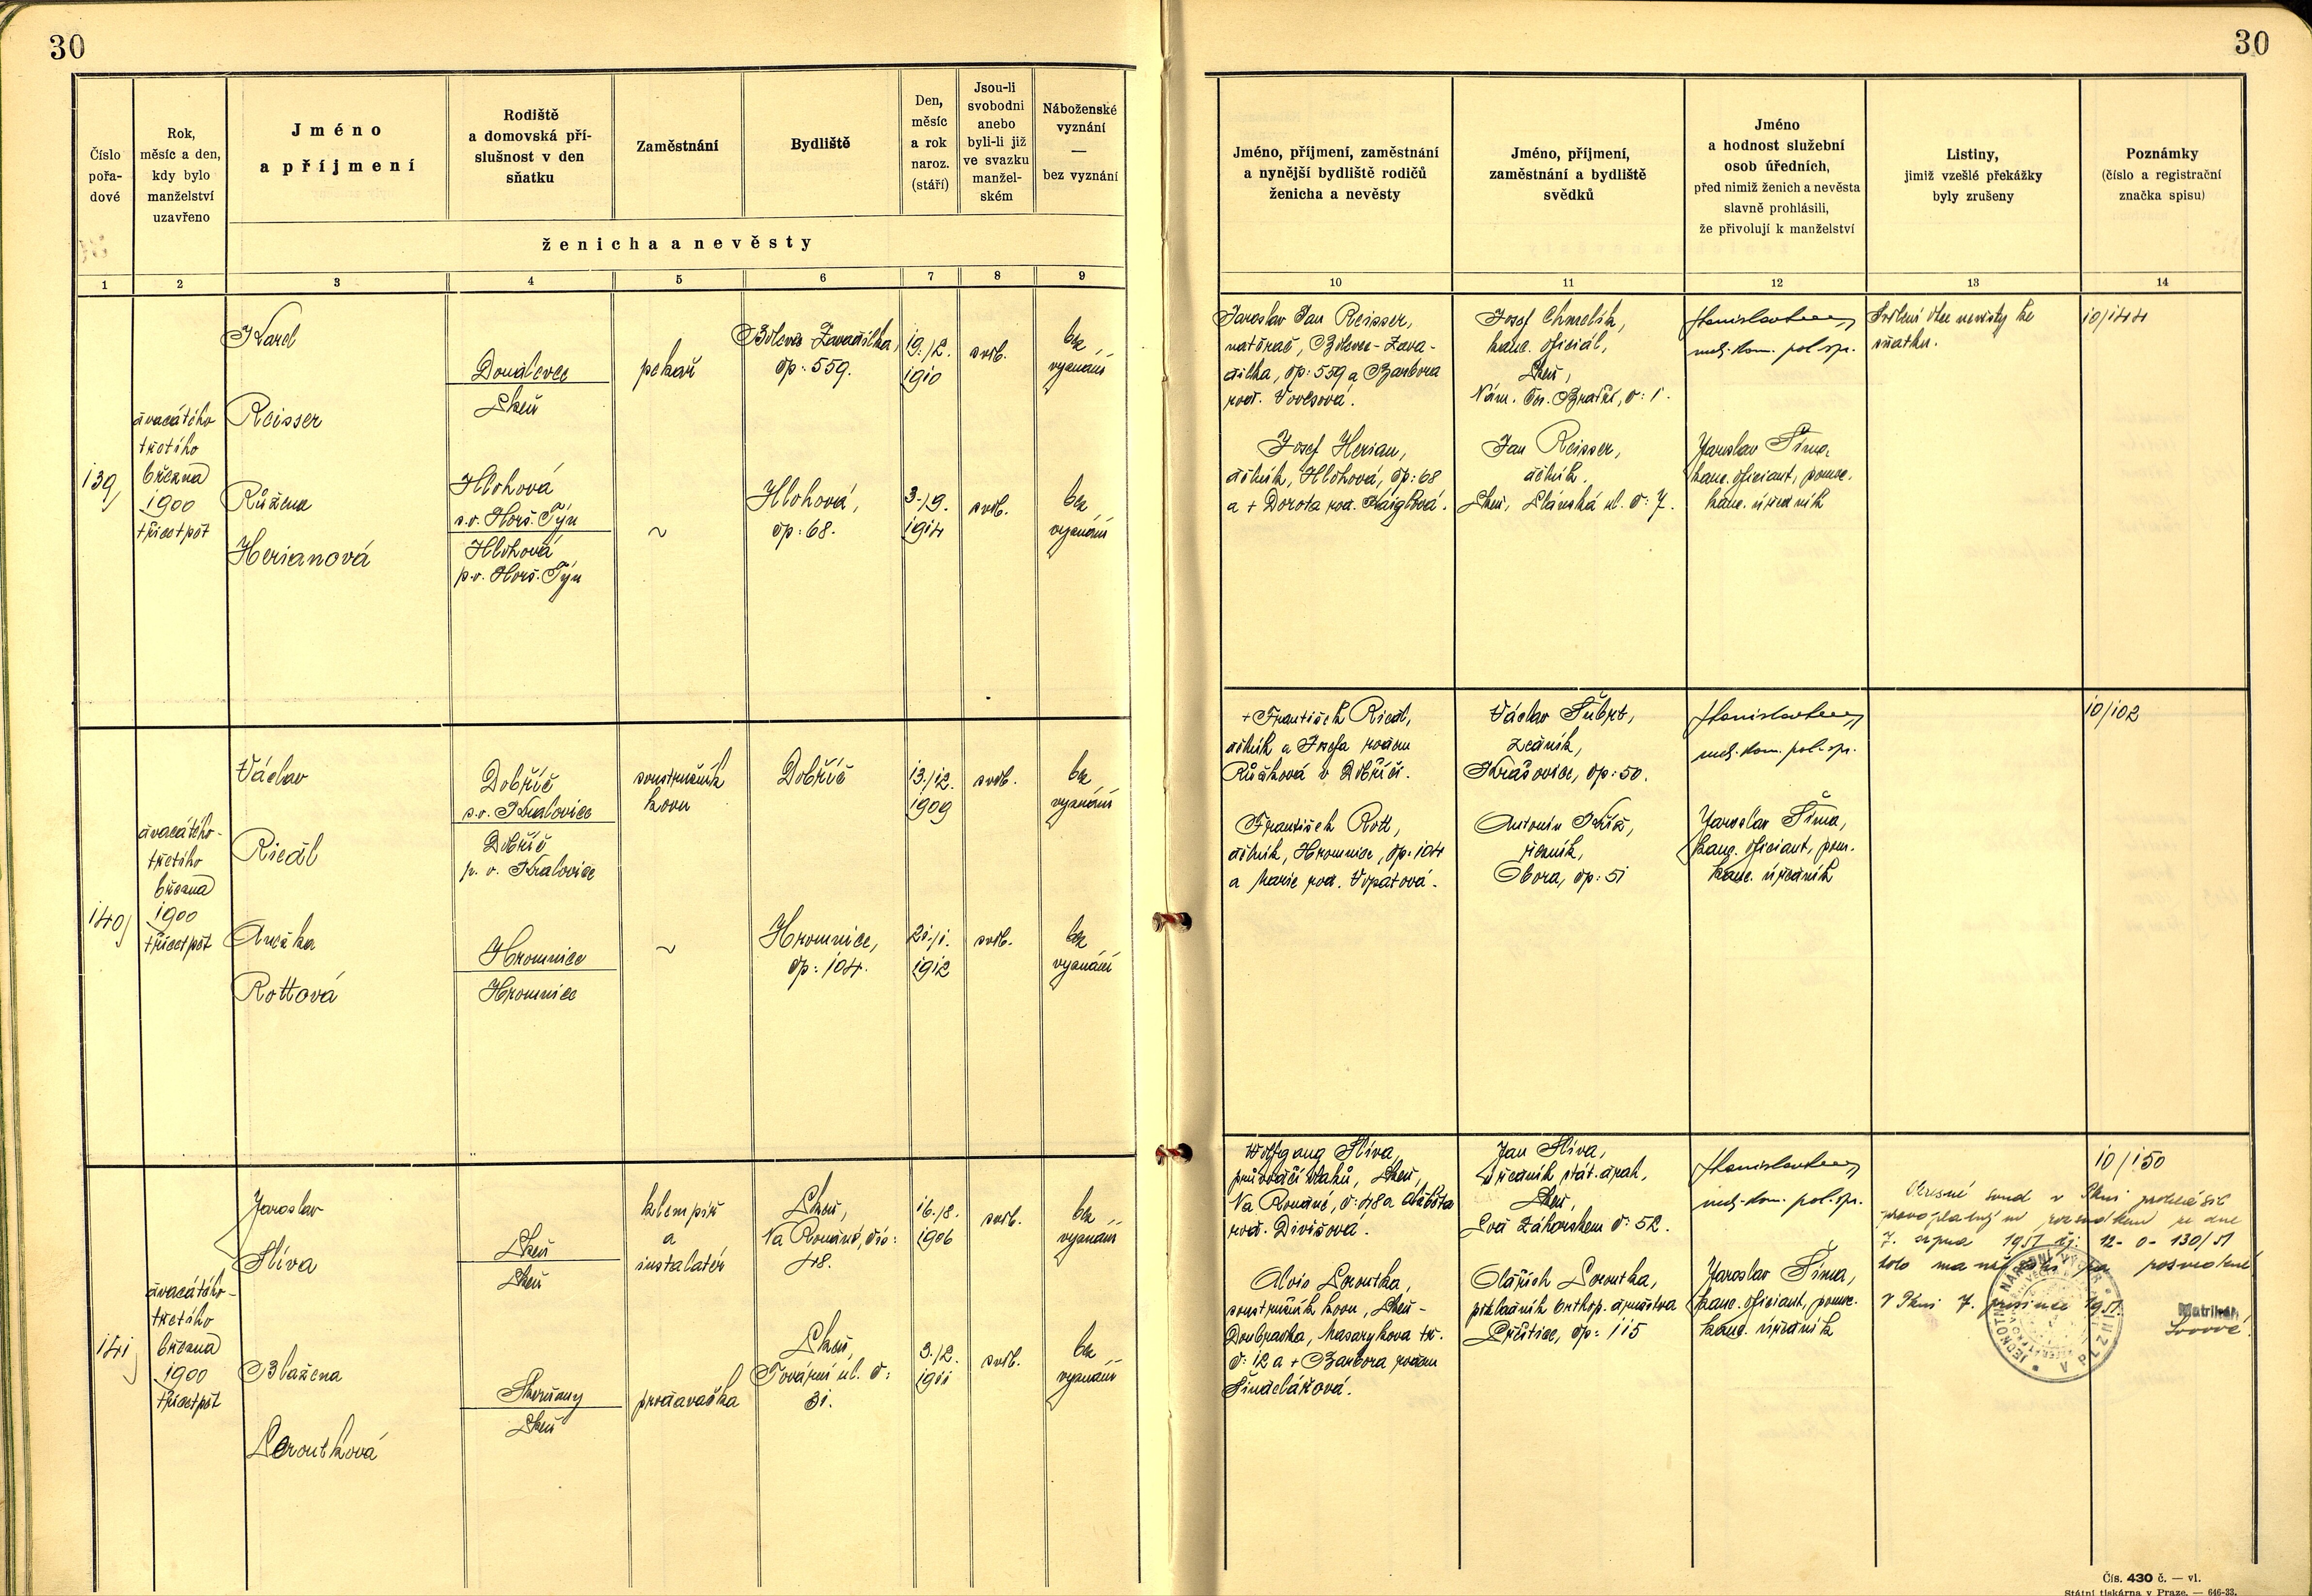 30
30
Číslo pořa-dové
Rok, měsíc a den, kdy bylo manželství uzavřeno
Jméno a příjmení
Rodiště a domovská pří-slušnost v den sňatku
Zaměstnání
Bydliště
Den, měsíc a rok naroz. (stáří)
Jsou-li svobodni anebo byli-li již ve svazku manžel-ském
Náboženské vyznání — bez vyznání
ženicha a nevěsty
Jméno, příjmení, zaměstnání a nynější bydliště rodičů ženicha a nevěsty
Jméno, příjmení, zaměstnání a bydliště svědků
Jméno a hodnost služební osob úředních, před nimiž ženich a nevěsta slavně prohlásili, že přivolují k manželství
Listiny, jimiž vzešlé překážky byly zrušeny
Poznámky (číslo a registrační značka spisu)
1 2 3 4 5 6 7 8 9
10 11 12 13 14
139
dvacátého
třetího
března
1900
třicetpět
Karel
Reisser
Doudlevce
Plzeň
pekař
Bílovec Zavadilka,
čp: 559.
19./2.
1910
svob.
bez
vyznání
Růžena
Herianová
Hlohová
s.o. Horš. Týn
Hlohová
p.o. Horš. Týn
~
Hlohová,
čp: 68.
3./9.
1914
svob.
bez
vyznání
Jaroslav Jan Reisser,
natěrač,
čp: 559 a Barbora
roz.
Josef Herian,
dělník, Hlohová, čp: 68
a + Dorota roz.
Josef Chmelík,
kanc. oficiál,
Plzeň,
Nám. Čs. Bratří, č: 1.
Jan Reisser,
dělník,
Plzeň, Slánská ul. č: 7.
měj. kom. pol. spr.
Jaroslav Šíma,
kanc. oficiant, pomoc.
kanc. úředník
Svolení otce nevěsty ke
sňatku.
10/144
140
dvacátého-
třetího
března
1900
třicetpět
Václav
Riedl
Dobříč
s.o. Kralovice
Dobříč
p. o. Kralovice
soustružník
kovu
Dobříč
13./12.
1909
svob.
bez
vyznání
Anežka
Rottová
Hromnice
Hromnice
~
Hromnice,
čp: 104.
21./1.
1912
svob.
bez
vyznání
+ František Riedl,
dělník a Josefa rozen
Růžková v Dobříči.
František Rott,
dělník, Hromnice, čp: 104
a Marie roz. Vopatová.
Václav Šubrt,
zedník,
Krašovice, čp: 50.
Antonín Kříž,
řezník,
Obora, čp: 51
měj. kom. pol. spr.
Jaroslav Šíma,
kanc. oficiant, pom.
kanc. úředník
10/102
141
dvacátého-
třetího
března
1900
třicetpět
Jaroslav
Slíva
Plzeň
Plzeň
klempíř
a
instalatér
Plzeň,
Na Roudné, čís:
48.
16./8.
1906
svob.
bez
vyznání
Blažena
Peroutková
Skvrňany
Plzeň
prodavačka
Plzeň,
Tovární ul. č:
31.
3./2.
1911
svob.
bez
vyznání
Wolfgang Slíva,
průvodčí vlaků, Plzeň,
Na Roudné, č: 48 a Alžběta
roz. Divišová.
Alois Peroutka,
soustružník kovu, Plzeň-
Doubravka, Masarykova tř.
č: 12 a + Barbora rozen
Šindelářová.
Jan Slíva,
úředník stát. drah,
Plzeň,
Pod Záhorskem č: 52.
Oldřich Peroutka,
pokladník
Přeštice, čp: 115
měj. kom. pol. spr.
Jaroslav Šíma,
kanc. oficiant, pomoc.
kanc. úředník
10/150
Okresní soud v Plzni prohlásil
pravoplatným rozsudkem ze dne
7. srpna 1951 čj: 12-O-130/51
toto manželství za rozvedené
V Plzni 7. prosince 1951.
JEDNOTNÝ NÁRODNÍ VÝBOR
V PLZNI
Matrikář:
Čís. 430 č. — vl.
Státní tiskárna v Praze. — 646-33.